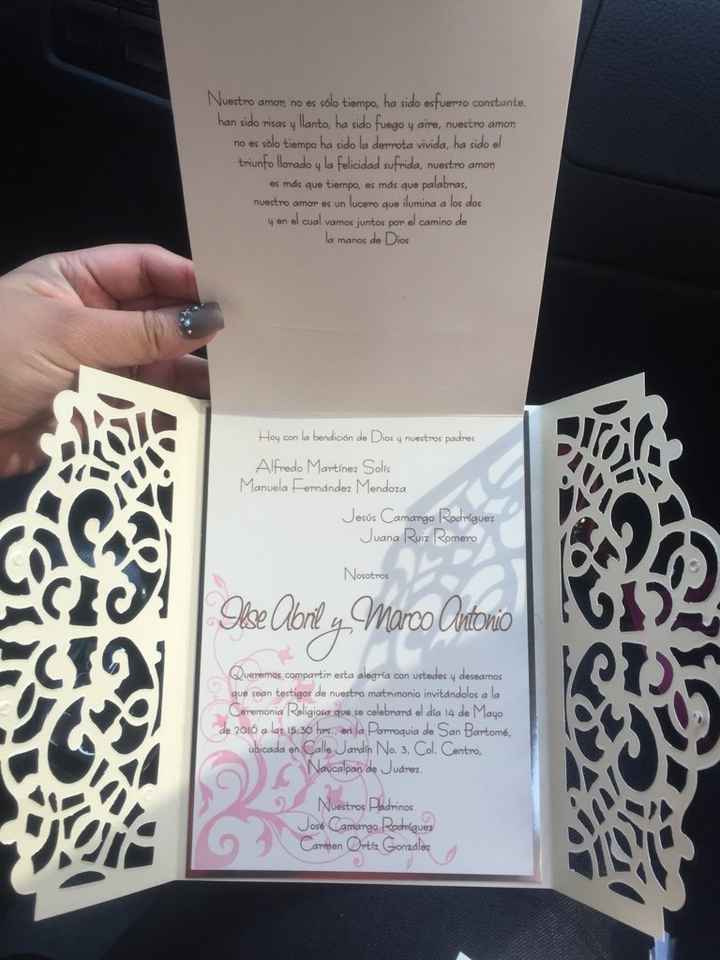 Nuestro amor, no es sólo tiempo, ha sido esfuerzo constante,
han sido risas y llanto, ha sido fuego y aire, nuestro amor,
no es sólo tiempo ha sido la derrota vivida, ha sido el
triunfo llorado y la felicidad sufrida, nuestro amor,
es más que tiempo, es más que palabras,
nuestro amor es un lucero que ilumina a los dos
y en el cual vamos juntos por el camino de
la manos de Dios
Hoy con la bendición de Dios y nuestros padres
Alfredo Martínez Solís
Manuela Fernández Mendoza
Jesús Camargo Rodríguez
Juana Ruiz Romero
Nosotros
Ilse Abril y Marco Antonio
Queremos compartir esta alegría con ustedes y deseamos
que sean testigos de nuestro matrimonio invitándolos a la
Ceremonia Religiosa que se celebrará el día 14 de Mayo
de 2016 a las 15:30 hrs., en la Parroquia de San Bartomé,
ubicada en Calle Jardín No. 3, Col. Centro,
Naucalpan de Juárez.
Nuestros Padrinos
José Camargo Rodríguez
Carmen Ortíz González